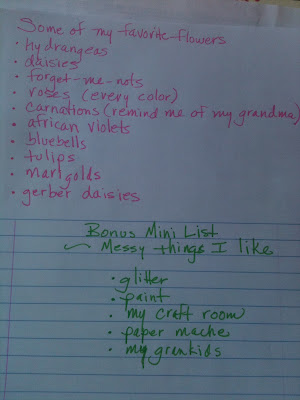 Some of my favorite flowers
• hydrangeas
• daisies
• forget-me-nots
• roses (every color)
• carnations (remind me of my grandma)
• african violets
• bluebells
• tulips
• marigolds
• gerber daisies
Bonus Mini List
~ Messy things I like
• glitter
• paint
• my craft room
• paper mache
• my grankids